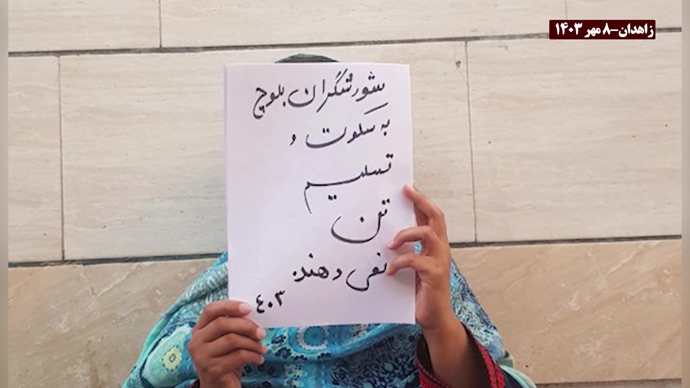 زاهدان-۸ مهر ۱۴۰۳
شورشگران بلوچ
به سکوت و
تسلیم
تن
نمی دهند
۴۰۳